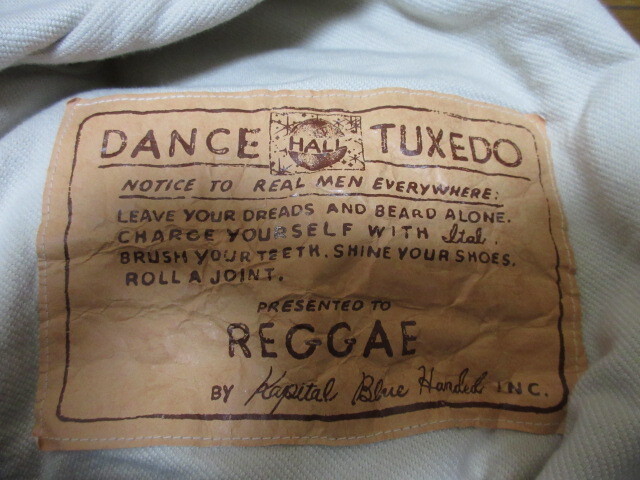 DANCE HALL TUXEDO
NOTICE TO REAL MEN EVERYWHERE:
LEAVE YOUR DREADS AND BEARD ALONE.
CHARGE YOURSELF WITH Ital.
BRUSH YOUR TEETH. SHINE YOUR SHOES.
ROLL A JOINT.
PRESENTED TO
REGGAE
BY Kapital Blue Handed INC.